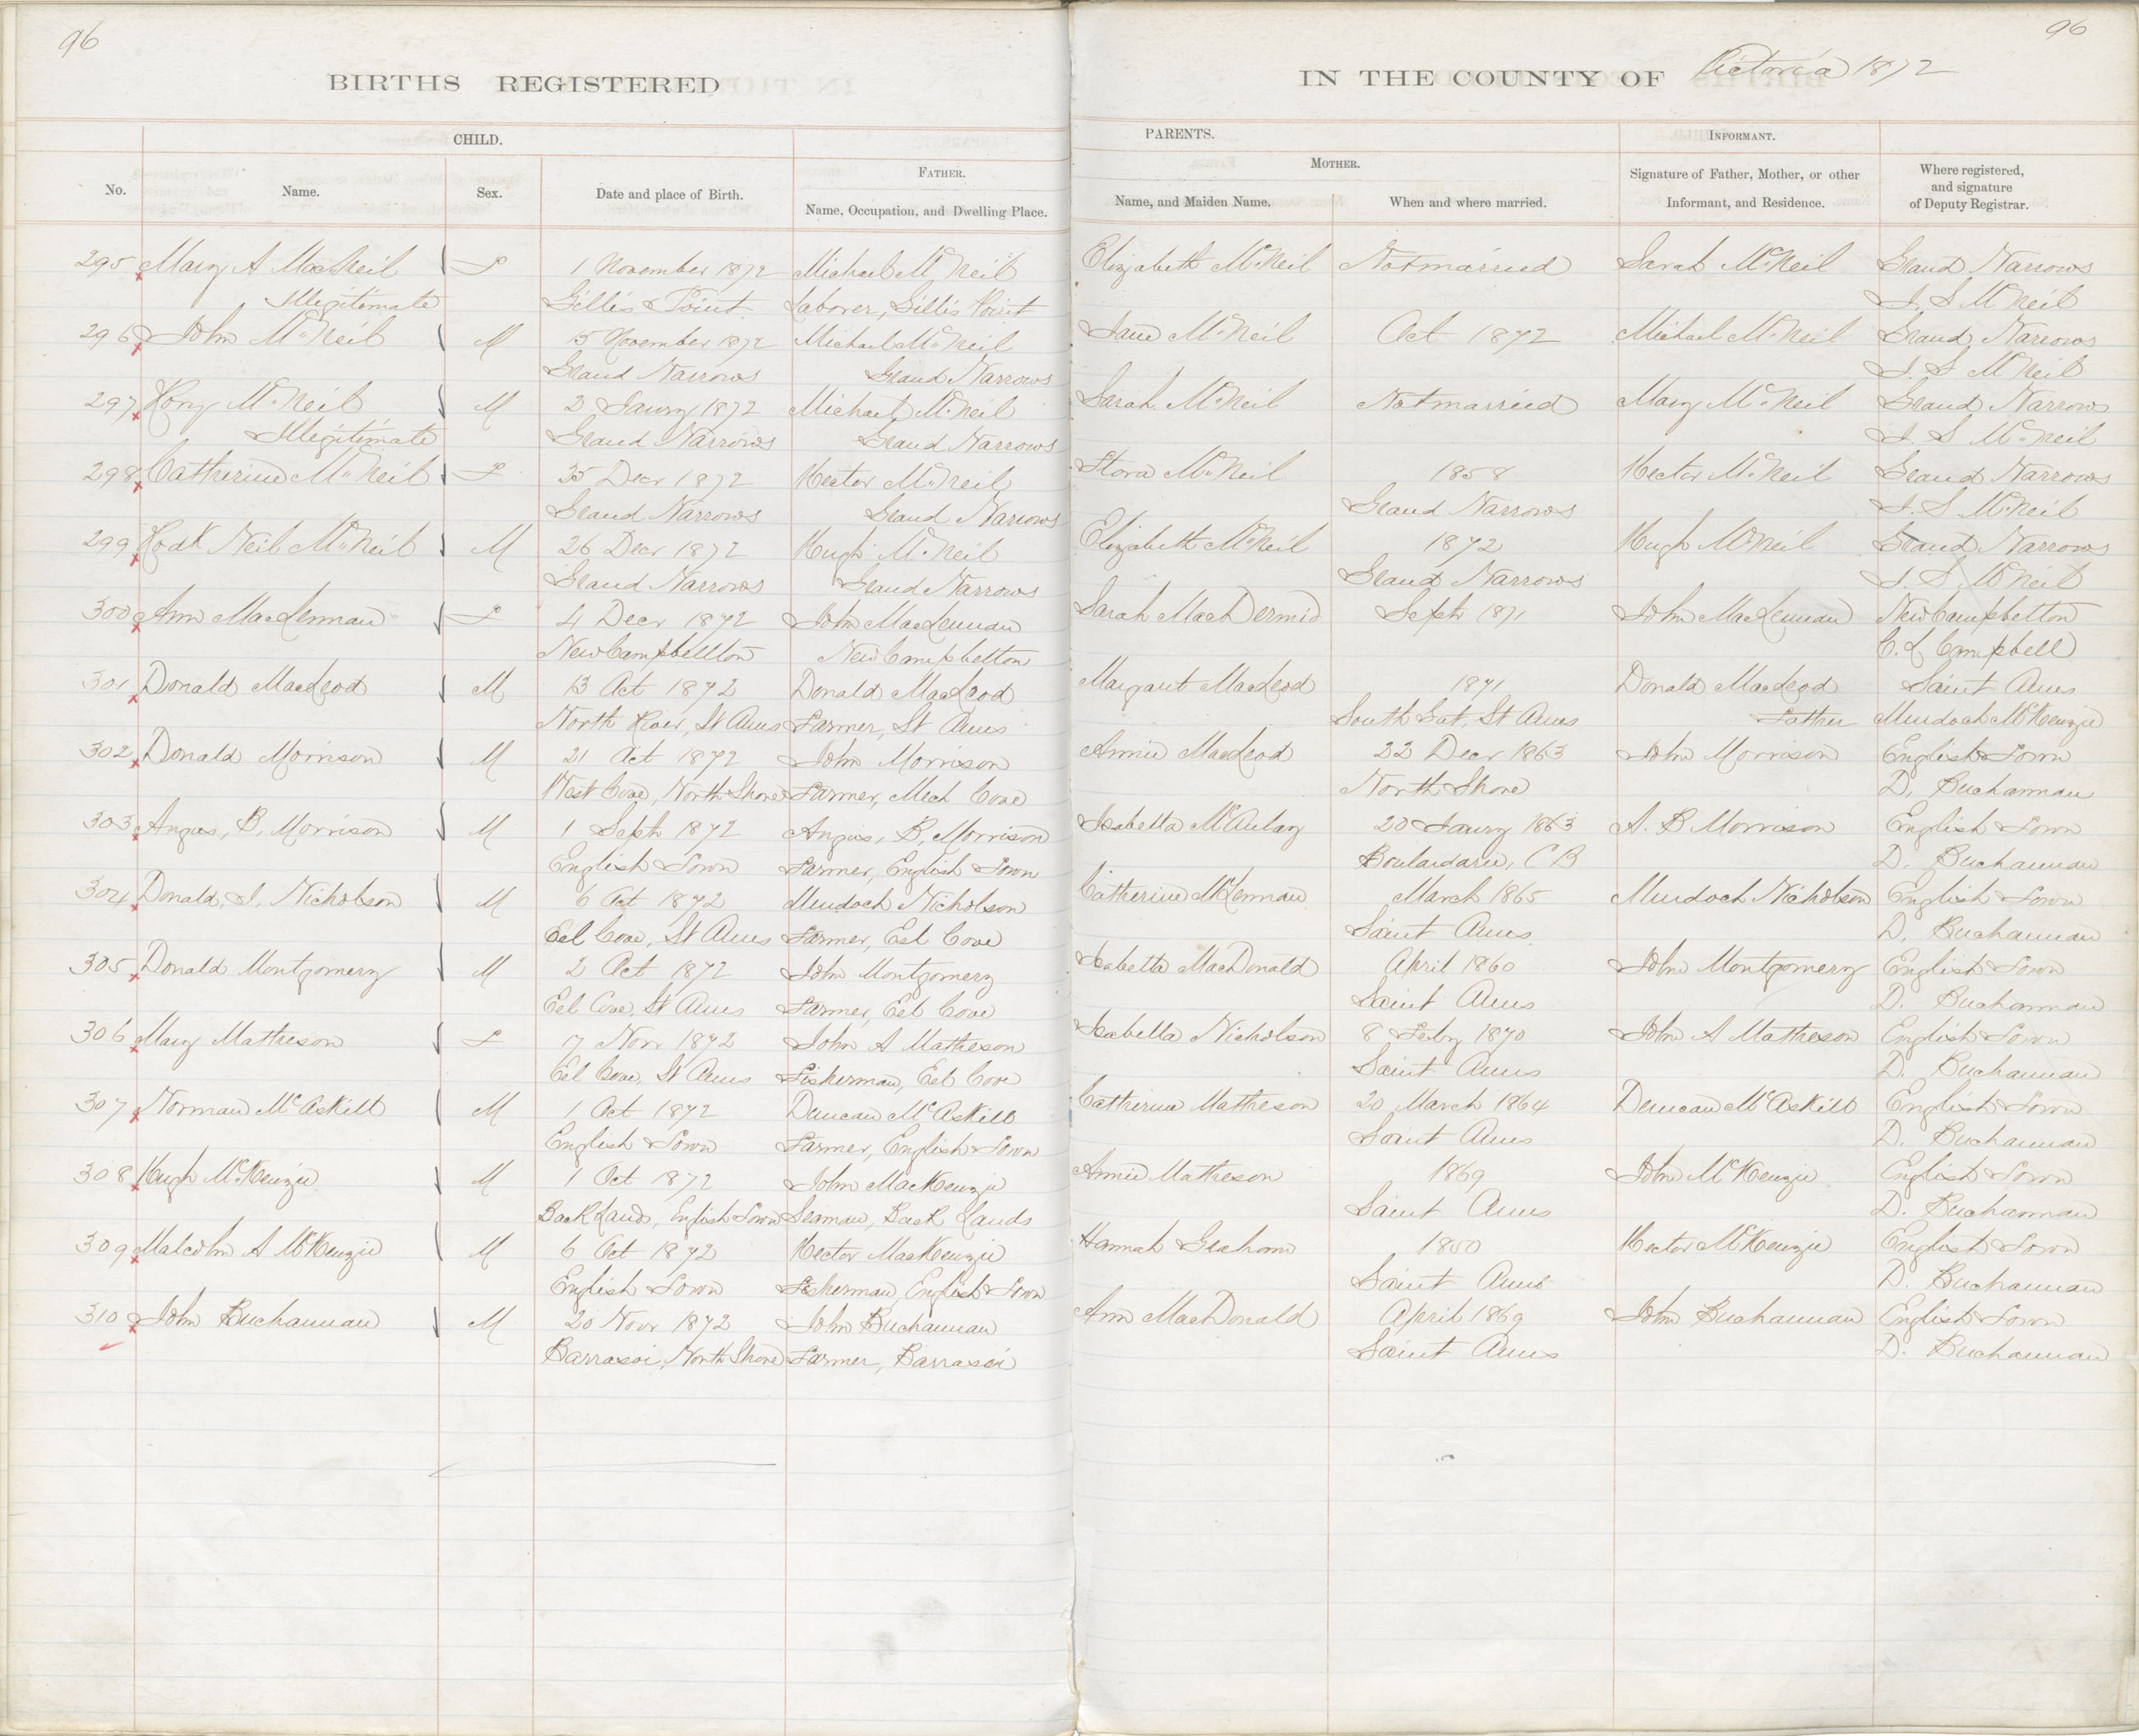 96
96
BIRTHS REGISTERED
IN THE COUNTY OF Victoria 1872
CHILD.
PARENTS.
INFORMANT.
FATHER.
MOTHER.
No.
Name.
Sex.
Date and place of Birth.
Name, Occupation, and Dwelling Place.
Name, and Maiden Name.
When and where married.
Signature of Father, Mother, or other
Informant, and Residence.
Where registered,
and signature
of Deputy Registrar.
295 Mary A MacNeil F 1 November 1872 Michael McNeil Elizabeth McNeil Not married Sarah McNeil Grand Narrows
Illegitimate Gillis Point Laborer, Gillis Point J. S McNeil
296 John McNeil M 15 November 1872 Michael McNeil Jane McNeil Oct 1872 Michael McNeil Grand Narrows
Grand Narrows Grand Narrows J. S McNeil
297 McNeil M 2 Jaury 1872 Michael McNeil Sarah McNeil Not married Mary McNeil Grand Narrows
Illegitimate Grand Narrows Grand Narrows J. S McNeil
298 Catherine McNeil F Decr 1872 Hector McNeil McNeil 1858 Hector McNeil Grand Narrows
Grand Narrows Grand Narrows Grand Narrows J. S. McNeil
299 Neil McNeil M 26 Decr 1872 Hugh McNeil Elizabeth McNeil 1872 Hugh McNeil Grand Narrows
Grand Narrows Grand Narrows Grand Narrows J. S. McNeil
300 Ann MacLennan F 4 Decr 1872 John MacLennan Sarah MacDermid Septr 1871 John MacLennan New Campbelton
New Campbellton New Campbelton C. L. Campbell
301 Donald MacLeod M 13 Oct 1872 Donald MacLeod Margaret MacLeod 1871 Donald MacLeod Saint Anns
North River, St Anns Farmer, St Anns South Gut, St Anns Father Murdoch McKenzie
302 Donald Morrison M 21 Oct 1872 John Morrison Annie MacLeod 22 Decr 1863 John Morrison English Town
Cove, North Shore Farmer, Cove North Shore D. Buchannan
303 Angus, B, Morrison M 1 Septr 1872 Angus, B, Morrison Isabella McAulay 20 Jaury 1863 A. B Morrison English Town
English Town Farmer, English Town Boulardarie, C B D. Buchannan
304 Donald, J, Nicholson M 6 Oct 1872 Murdoch Nicholson Catherine McLennan March 1865 Murdoch Nicholson English Town
Eel Cove, St Anns Farmer, Eel Cove Saint Anns D. Buchannan
305 Donald Montgomery M 2 Oct 1872 John Montgomery Isabella MacDonald April 1860 John Montgomery English Town
Eel Cove, St Anns Farmer, Eel Cove Saint Anns D. Buchannan
306 Mary Matheson F 7 Novr 1872 John A Matheson Isabella Nicholson 8 Feby 1870 John A Matheson English Town
Eel Cove, St Anns Fisherman, Eel Cove Saint Anns D. Buchannan
307 Norman McAskill M 1 Oct 1872 Duncan McAskill Catherine Matheson 20 March 1864 Duncan McAskill English Town
English Town Farmer, English Town Saint Anns D. Buchannan
308 Hugh McKenzie M 1 Oct 1872 John MacKenzie Annie Matheson 1869 John McKenzie English Town
Back Lands, English Town Seaman, Back Lands Saint Anns D. Buchannan
309 Malcolm A McKenzie M 6 Oct 1872 Hector MacKenzie Hannah Graham 1850 Hector McKenzie English Town
English Town Fisherman, English Town Saint Anns D. Buchannan
310 John Buchannan M 20 Novr 1872 John Buchannan Ann MacDonald April 1869 John Buchannan English Town
Barrasoi, North Shore Farmer, Barrasoi Saint Anns D. Buchannan